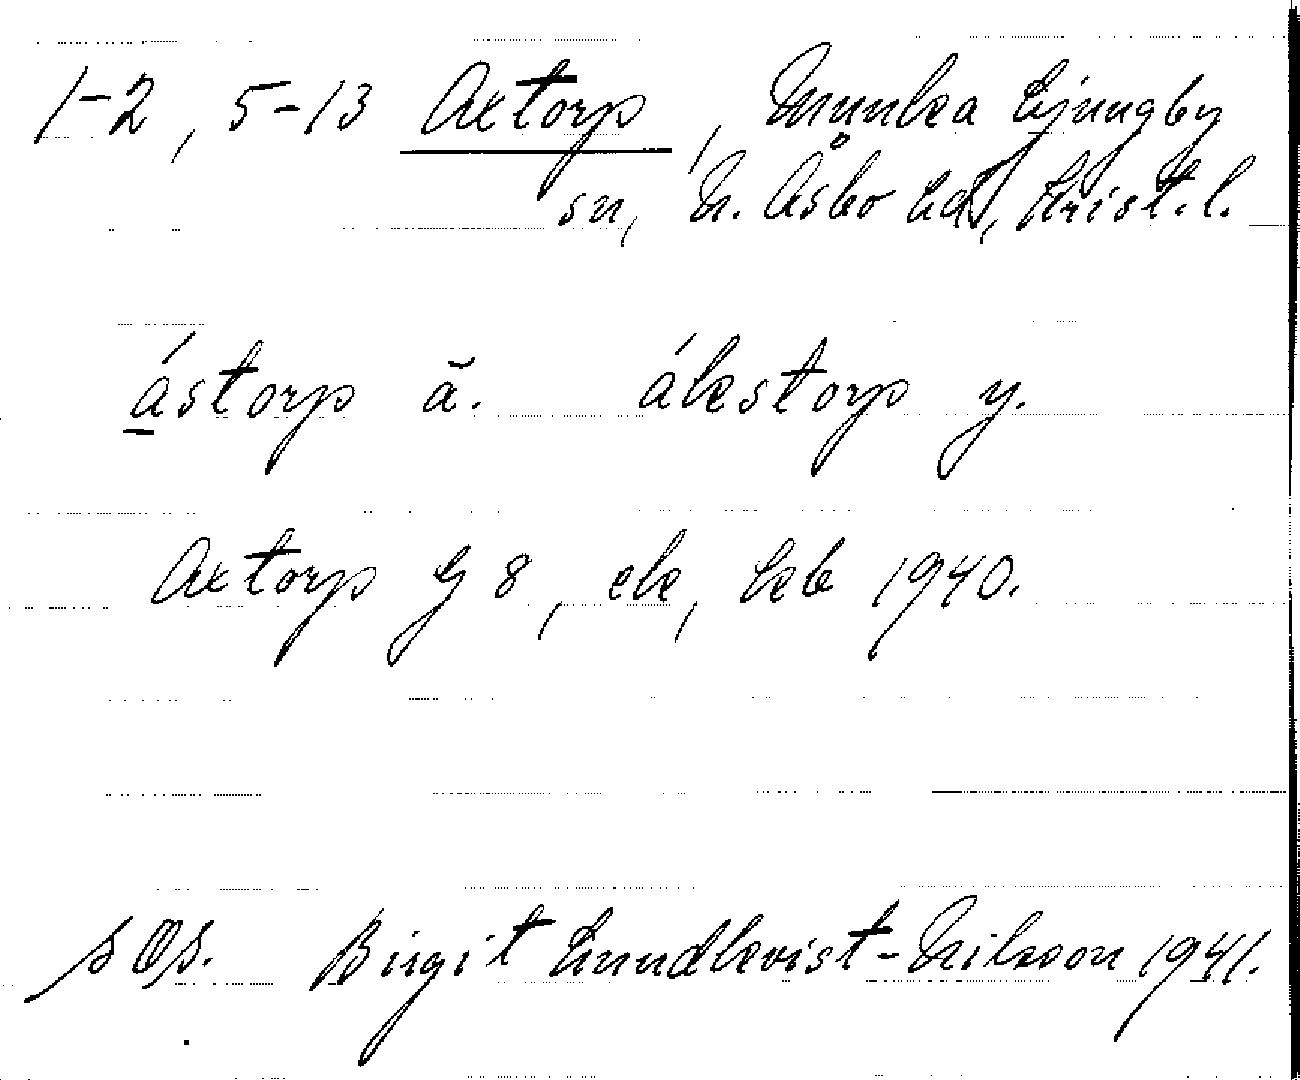 1-2, 5-13 Axtorp, Munka Ljungby
sn, N. Åsbo hd, Krist. l.
ástorp ä. álestorp y.
Axtorp G 8, ek, kb 1940.
SOS. Birgit Lundkvist-Nilsson 1941.